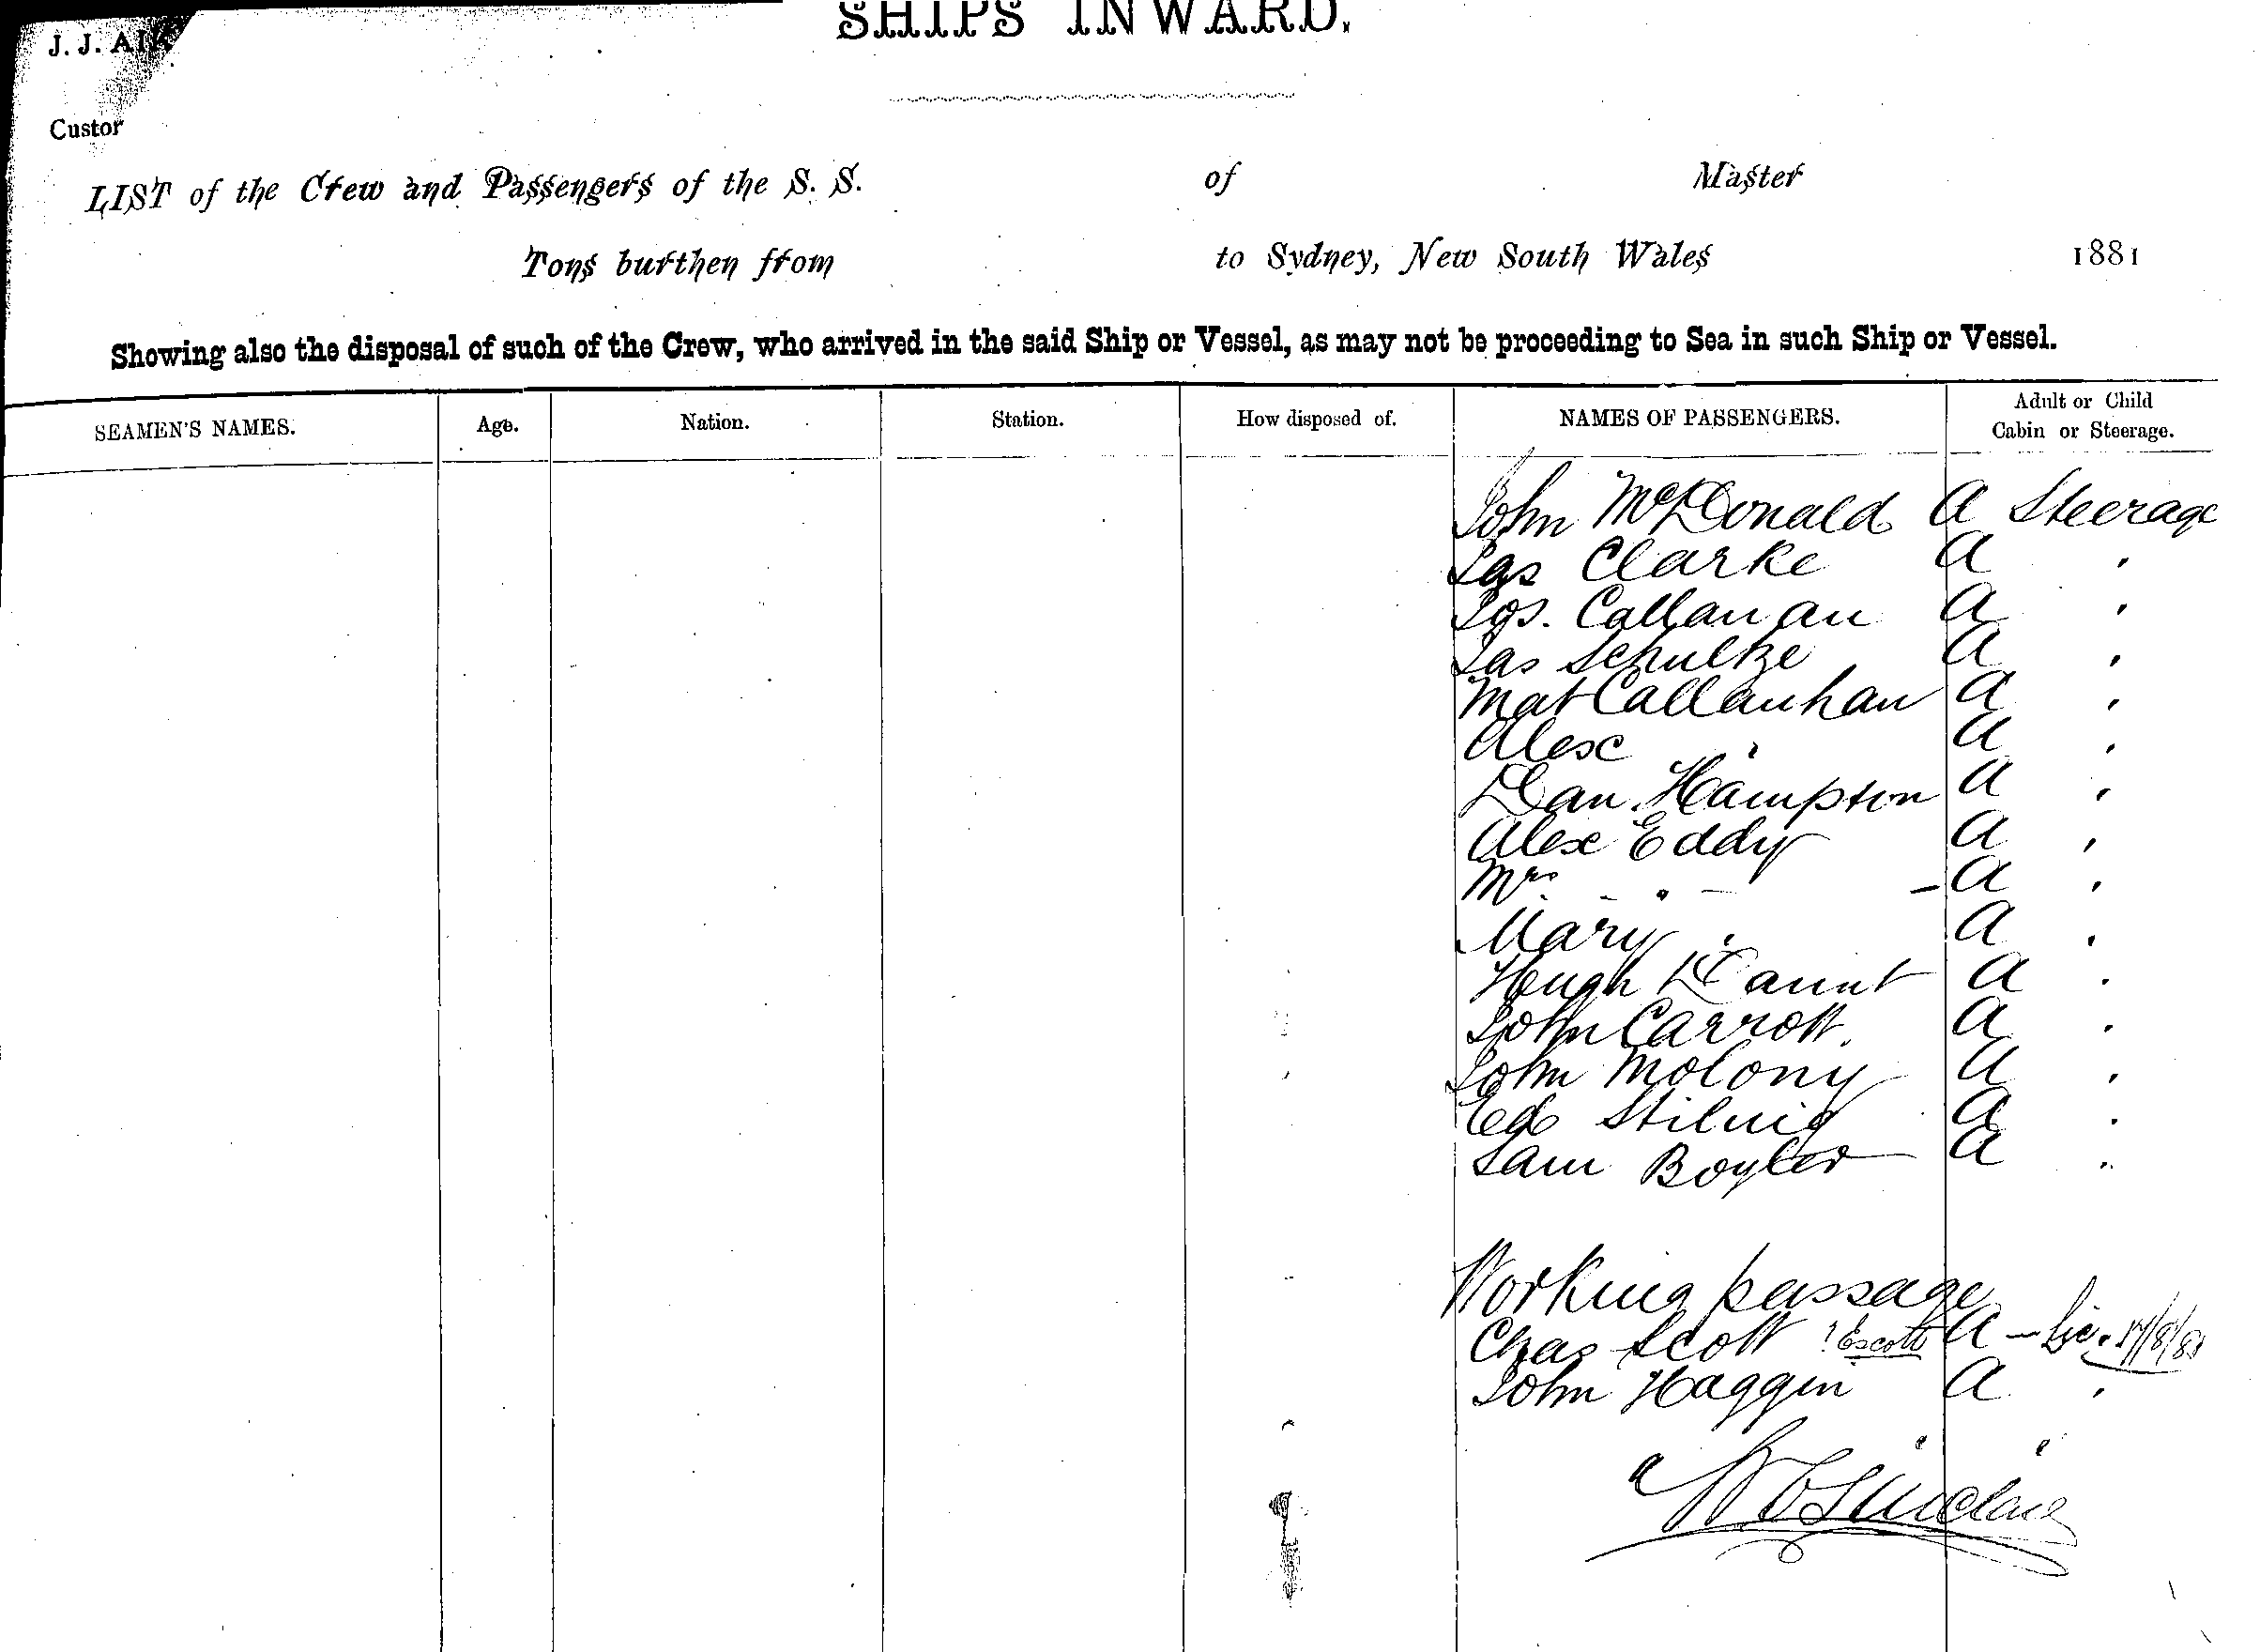 SHIPS INWARD.
J. J.
Custo
LIST of the Crew and Passengers of the S. S. of Master
Tons burthen from to Sydney, New South Wales 1881
Showing also the disposal of such of the Crew, who arrived in the said Ship or Vessel, as may not be proceeding to Sea in such Ship or Vessel.
SEAMEN'S NAMES. Age. Nation. Station. How disposed of. NAMES OF PASSENGERS. Adult or Child
Cabin or Steerage.
John McDonald A Steerage
Jas Clarke A "
Jos. Callanan A "
Jas Schultze A "
Mat Callanhan A "
Alex " A "
Dan. Hampson A "
Alex Eddy A "
Mrs. - " - - A "
Mary " A "
Hugh Daunt A "
John Carrott. A "
John Molony A "
Ed A "
Sam Boyler A "
Working passage
Chas Scott ? Escott A 17/8/81
John Haggin A "
Sinclair